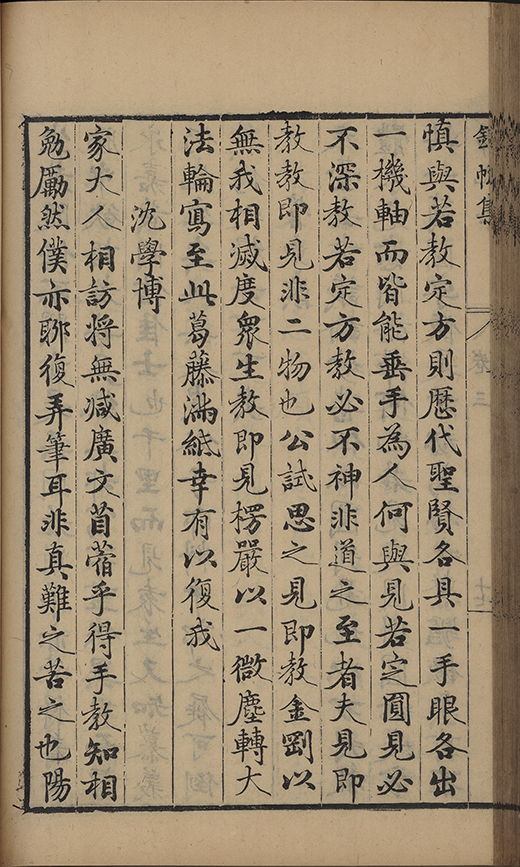 慎與若教定方則歷代聖賢各具一手眼各出
一機軸而皆能垂手為人何與見若定圓見必
不深教若定方教必不神非道之至者夫見即
教教即見非二物也公試思之見即教金剛以
無我相滅度衆生教即見楞嚴以一微塵轉大
法輪寫至此葛藤滿紙幸有以復我
沈學博
家大人相訪將無減廣文苜蓿乎得手教知相
勉厲然僕亦聊復弄筆耳非真難之苦之也陽